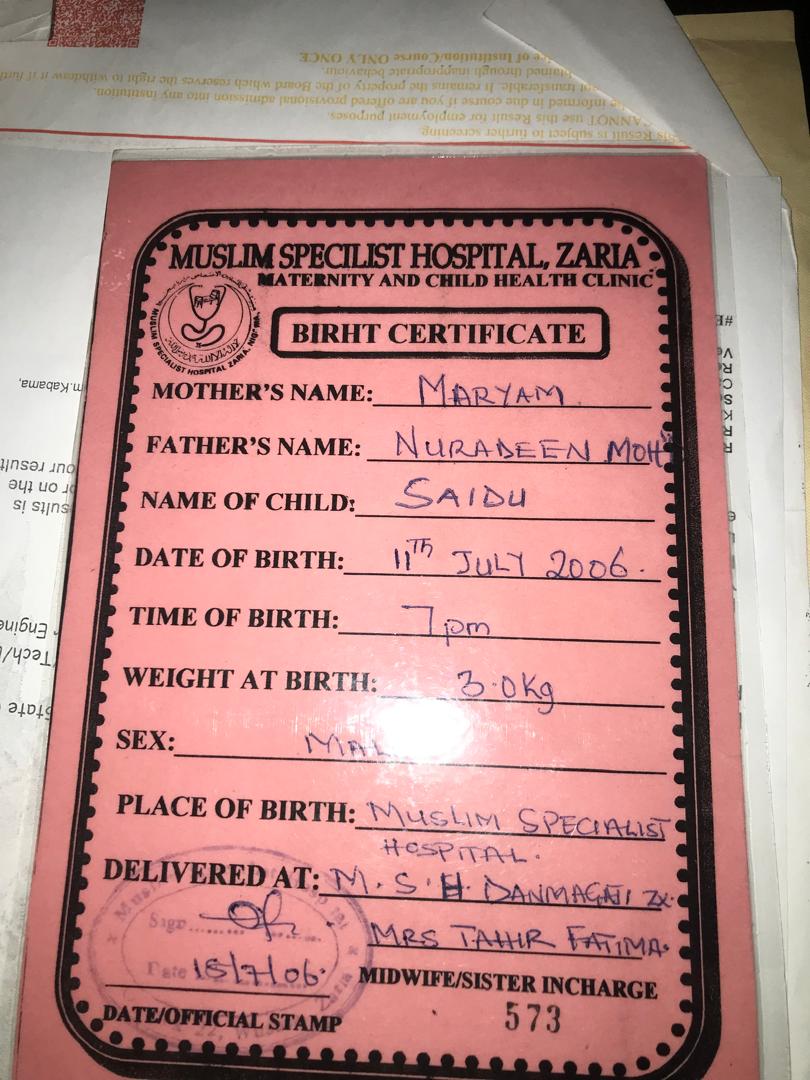 ice of Institution/Course ONLY ONCE
btained through inappropriate behaviour.
transferable. It remains the property of the Board which reserves the right to withdraw if furt
be informed in due course if you are offered provisional admission into any institution.
CANNOT use this Result for employment purposes.
This Result is subject to further screening
MUSLIM SPECILIST HOSPITAL, ZARIA
MATERNITY AND CHILD HEALTH CLINIC
MUSLIM SPECIALIST HOSPITAL ZARIA, NIG.
BIRHT CERTIFICATE
MOTHER'S NAME: MARYAM
FATHER'S NAME: NURADEEN MOH'D
NAME OF CHILD: SAIDU
DATE OF BIRTH: 11TH JULY 2006.
TIME OF BIRTH: 7pm
WEIGHT AT BIRTH: 3.0Kg
SEX: MAL
PLACE OF BIRTH: MUSLIM SPECIALIST
HOSPITAL.
DELIVERED AT: M.S.H. DANMAGAJI ZX.
Sign
MRS TAHIR FATIMA.
Date 18/7/06.
MIDWIFE/SISTER INCHARGE
DATE/OFFICIAL STAMP
573
m.Kabama,
our result
or on the
sults is
Engine
Tech/
State